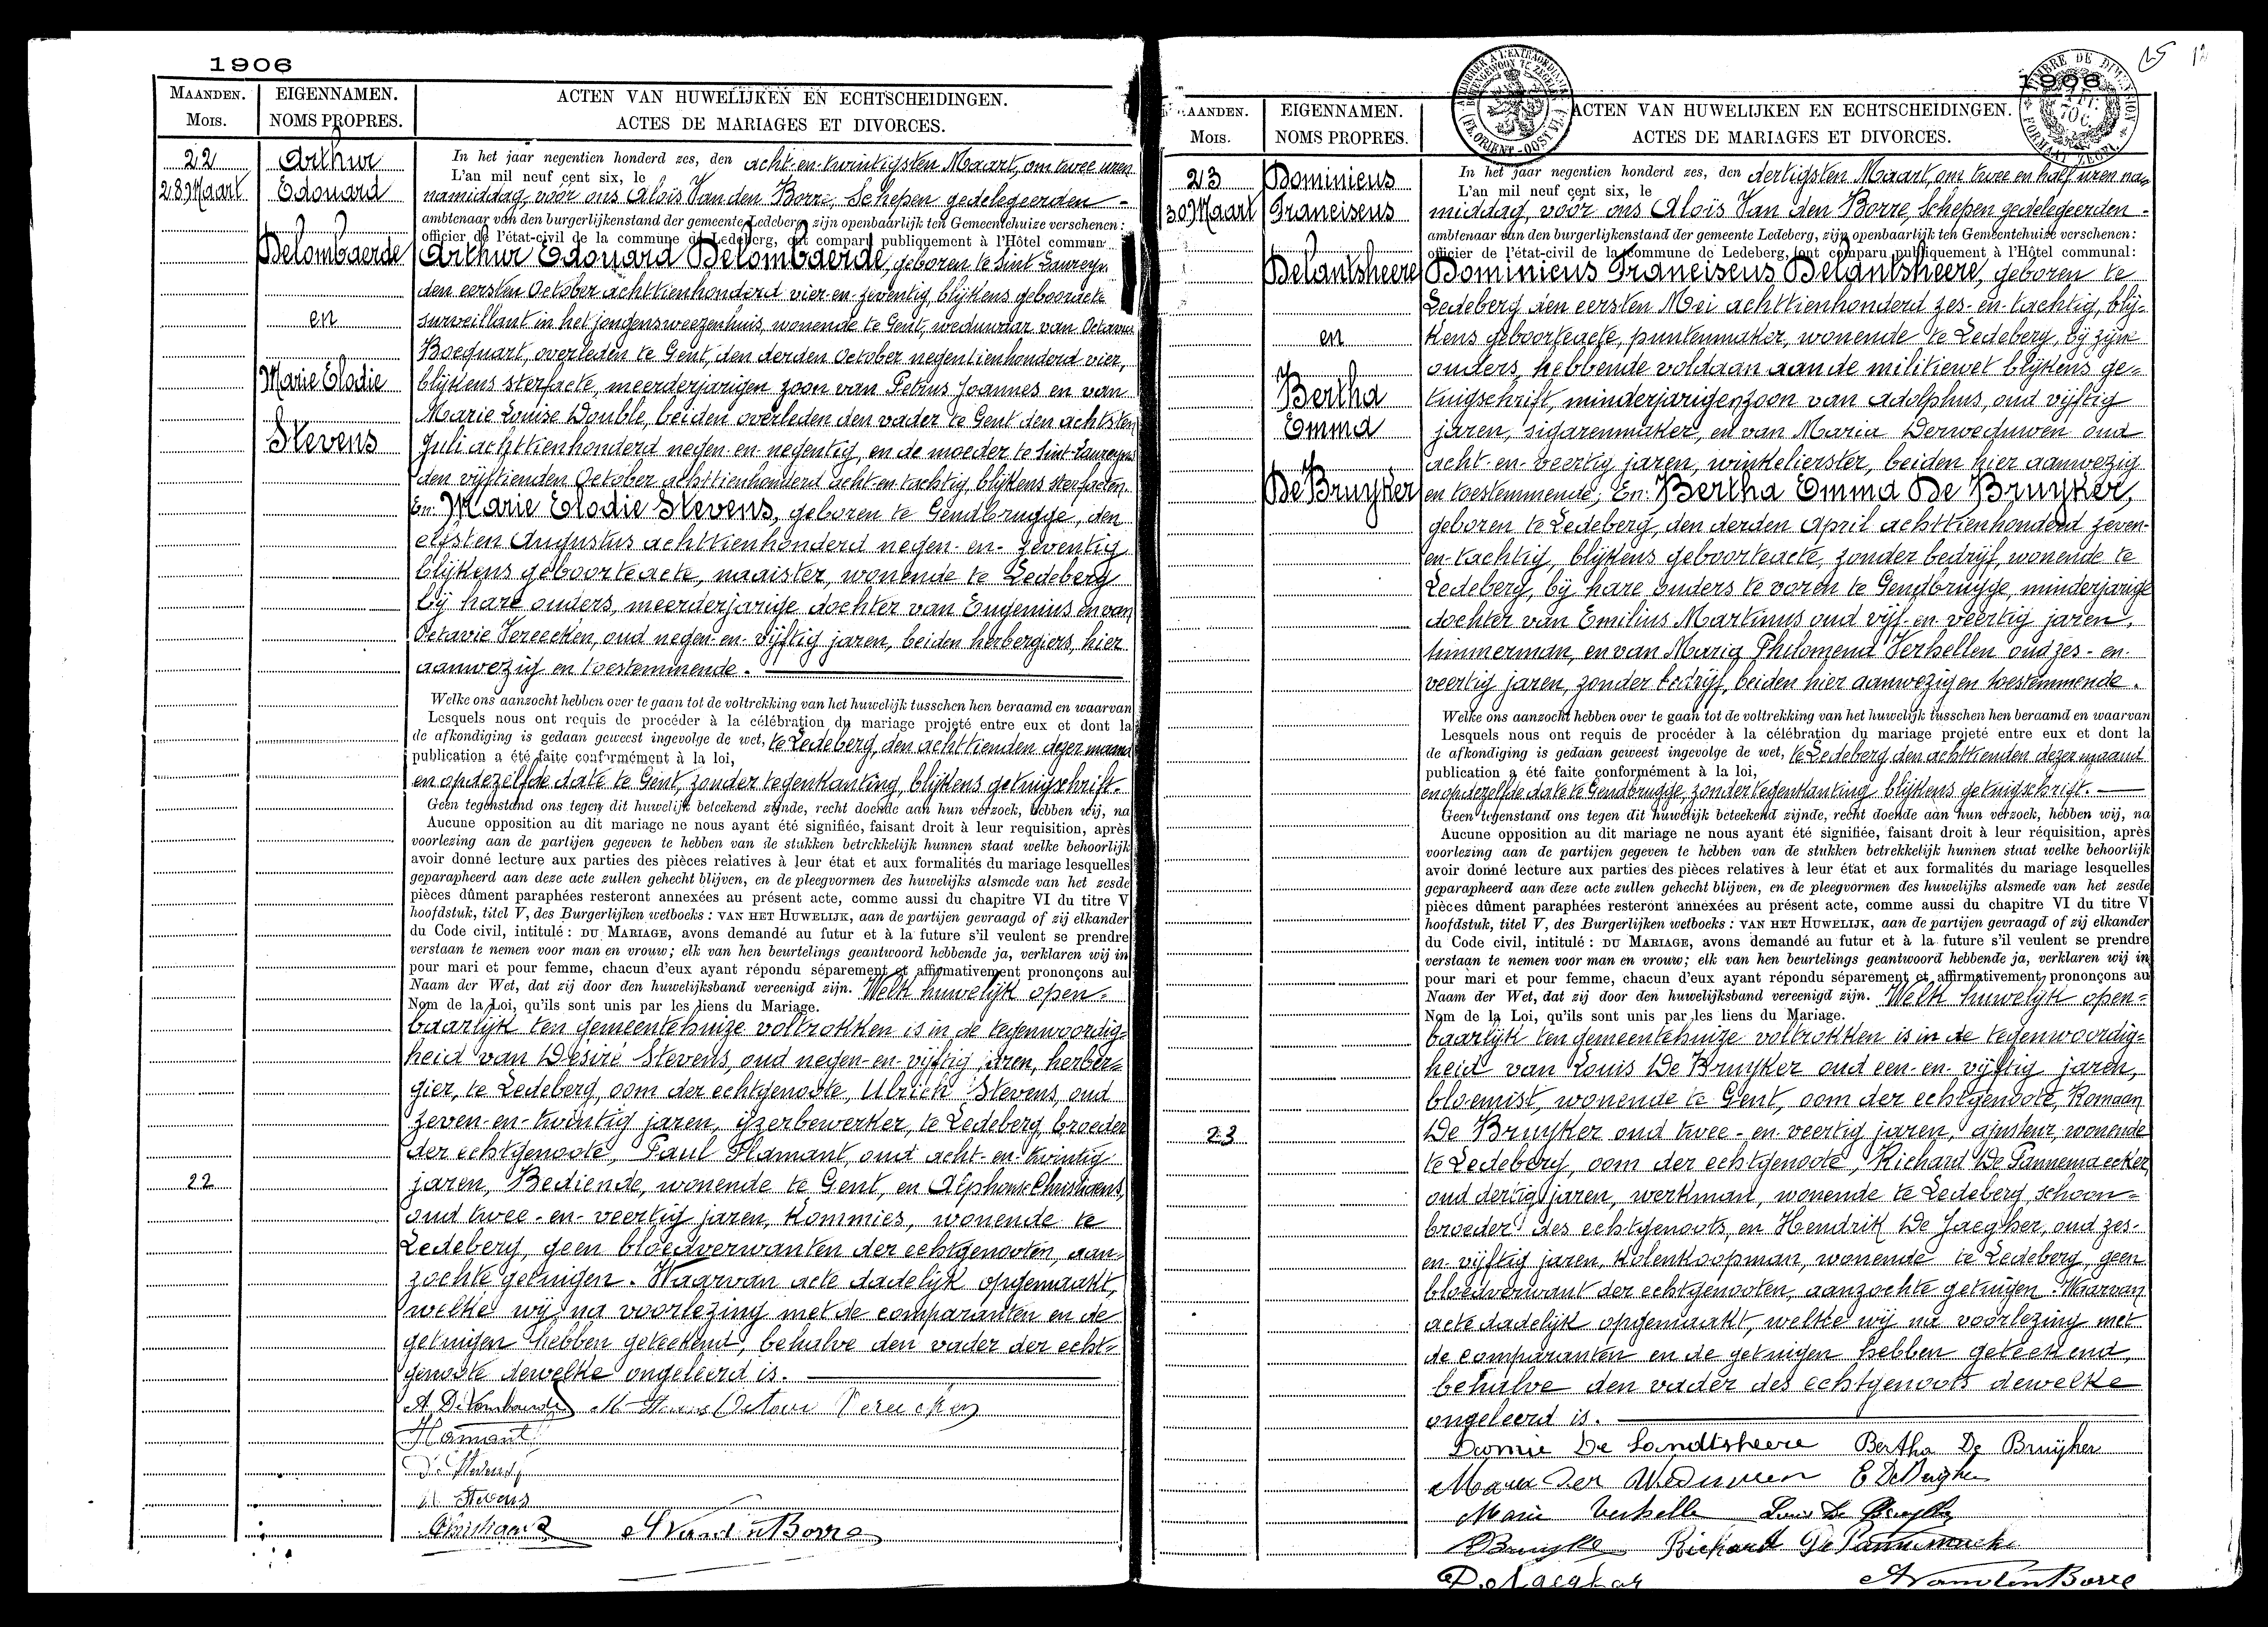 1906
MAANDEN.
Mois.
EIGENNAMEN.
NOMS PROPRES.
ACTEN VAN HUWELIJKEN EN ECHTSCHEIDINGEN.
ACTES DE MARIAGES ET DIVORCES.
22
28 Maart
Arthur
Edouard
Delombaerde
en
Marie Elodie
Stevens
In het jaar negentien honderd zes, den acht-en-twintigsten Maart, om twee uren
L'an mil neuf cent six, le
namiddag, vóór ons Aloïs Van den Borre, Schepen gedelegeerden -
ambtenaar van den burgerlijkenstand der gemeente Ledeberg zijn openbaarlijk ten Gemeentehuize verschenen:
officier de l'état-civil de la commune de Ledeberg, ont comparu publiquement à l'Hôtel commun
Arthur Edouard Delombaerde, geboren te Sint Laureyn
den eersten October achttienhonderd vier-en-zeventig, blijkens geboorteacte
surveillant in het jongensweezenhuis, wonende te Gent, weduwaar van Octavie
Bocquart, overleden te Gent, den derden October negentienhonderd vier,
blijkens sterfacte, meerderjarigen zoon van Petrus Joannes en van
Marie Louise Double, beiden overleden den vader te Gent den achtsten
Juli achttienhonderd negen-en-negentig, en de moeder te Sint-Laureyns
den vijftienden October achttienhonderd acht-en-tachtig, blijkens sterfacten.
En: Marie Elodie Stevens, geboren te Gendbrugge, den
elfsten Augustus achttienhonderd negen-en-zeventig
blijkens geboorteacte, naaister, wonende te Ledeberg
bij hare ouders, meerderjarige dochter van Eugenius en van
Octavie Vereecken, oud negen-en-vijftig jaren, beiden herbergiers, hier
aanwezig en toestemmende.
Welke ons aanzocht hebben over te gaan tot de voltrekking van het huwelijk tusschen hen beraamd en waarvan
Lesquels nous ont requis de procéder à la célébration du mariage projeté entre eux et dont la
de afkondiging is gedaan geweest ingevolge de wet, te Ledeberg, den achttienden dezer maand
publication a été faite conformément à la loi,
en op dezelfde date te Gent, zonder tegenkanting, blijkens getuigschrift.
Geen tegenstand ons tegen dit huwelijk beteekend zijnde, recht doende aan hun verzoek, hebben wij, na
Aucune opposition au dit mariage ne nous ayant été signifiée, faisant droit à leur requisition, après
voorlezing aan de partijen gegeven te hebben van de stukken betrekkelijk hunnen staat welke behoorlijk
avoir donné lecture aux parties des pièces relatives à leur état et aux formalités du mariage lesquelles
geparapheerd aan deze acte zullen gehecht blijven, en de pleegvormen des huwelijks alsmede van het zesde
pièces dûment paraphées resteront annexées au présent acte, comme aussi du chapitre VI du titre V
hoofdstuk, titel V, des Burgerlijken wetboeks : VAN HET HUWELIJK, aan de partijen gevraagd of zij elkander
du Code civil, intitulé : DU MARIAGE, avons demandé au futur et à la future s'il veulent se prendre
verstaan te nemen voor man en vrouw; elk van hen beurtelings geantwoord hebbende ja, verklaren wij in
pour mari et pour femme, chacun d'eux ayant répondu séparement et affirmativement prononçons au
Naam der Wet, dat zij door den huwelijksband vereenigd zijn. Welk huwelijk open=
Nom de la Loi, qu'ils sont unis par les liens du Mariage.
baarlijk ten gemeentehuize voltrokken is in de tegenwoordig=
heid van Désiré Stevens, oud negen-en-vijftig jaren, herber=
gier, te Ledeberg, oom der echtgenoote, Ulrich Stevens, oud
zeven-en-twintig jaren, ijzerbewerker, te Ledeberg, broeder
der echtgenoote, Paul Hamant, oud acht-en-twintig
22
jaren, Bediende, wonende te Gent, en Alphonse Christiaens,
oud twee-en-veertig jaren, kommies, wonende te
Ledeberg, geen bloedverwanten der echtgenooten, aan=
zochte getuigen. Waarvan acte dadelijk opgemaakt,
welke wij na voorlezing met de comparanten en de
getuigen hebben geteekend, behalve den vader der echt=
genoote dewelke ongeleerd is.
A. Delombaerde M Stevens Octavie Vereecken
Hamant
D. Stevens
U. Stevens
Christiaens AVandenBorre
1906
MAANDEN.
Mois.
EIGENNAMEN.
NOMS PROPRES.
ACTEN VAN HUWELIJKEN EN ECHTSCHEIDINGEN.
ACTES DE MARIAGES ET DIVORCES.
23
30 Maart
Dominicus
Franciscus
Delantsheere
en
Bertha
Emma
De Bruyker
In het jaar negentien honderd zes, den dertigsten Maart, om twee en half uren na=
L'an mil neuf cent six, le
middag, vóór ons Aloïs Van den Borre, Schepen gedelegeerden -
ambtenaar van den burgerlijkenstand der gemeente Ledeberg, zijn openbaarlijk ten Gemeentehuize verschenen:
officier de l'état-civil de la commune de Ledeberg, ont comparu publiquement à l'Hôtel communal:
Dominicus Franciscus Delantsheere, geboren te
Ledeberg den eersten Mei achttienhonderd zes-en-tachtig, blij=
kens geboorteacte, puntenmaker, wonende te Ledeberg, bij zijne
ouders, hebbende voldaan aan de militiewet blijkens ge=
tuigschrift, minderjarigen zoon van Adolphus, oud vijftig
jaren, sigarenmaker, en van Maria Derweduwen oud
acht-en-veertig jaren, winkelierster, beiden hier aanwezig
en toestemmende; En: Bertha Emma De Bruyker,
geboren te Ledeberg, den derden April achttienhonderd zeven-
en-tachtig, blijkens geboorteacte, zonder bedrijf, wonende te
Ledeberg, bij hare ouders te voren te Gendbrugge, minderjarige
dochter van Emilius Martinus oud vijf-en-veertig jaren,
timmerman, en van Maria Philomena Verhellen oud zes-en-
veertig jaren, zonder bedrijf, beiden hier aanwezig en toestemmende.
Welke ons aanzocht hebben over te gaan tot de voltrekking van het huwelijk tusschen hen beraamd en waarvan
Lesquels nous ont requis de procéder à la célébration du mariage projeté entre eux et dont la
de afkondiging is gedaan geweest ingevolge de wet, te Ledeberg den achttienden dezer maand
publication a été faite conformément à la loi,
en op dezelfde date te Gendbrugge, zonder tegenkanting blijkens getuigschrift.
Geen tegenstand ons tegen dit huwelijk beteekend zijnde, recht doende aan hun verzoek, hebben wij, na
Aucune opposition au dit mariage ne nous ayant été signifiée, faisant droit à leur réquisition, après
voorlezing aan de partijen gegeven te hebben van de stukken betrekkelijk hunnen staat welke behoorlijk
avoir donné lecture aux parties des pièces relatives à leur état et aux formalités du mariage lesquelles
geparapheerd aan deze acte zullen gehecht blijven, en de pleegvormen des huwelijks alsmede van het zesde
pièces dûment paraphées resteront annexées au présent acte, comme aussi du chapitre VI du titre V
hoofdstuk, titel V, des Burgerlijken wetboeks : VAN HET HUWELIJK, aan de partijen gevraagd of zij elkander
du Code civil, intitulé : DU MARIAGE, avons demandé au futur et à la future s'il veulent se prendre
verstaan te nemen voor man en vrouw; elk van hen beurtelings geantwoord hebbende ja, verklaren wij in
pour mari et pour femme, chacun d'eux ayant répondu séparement et affirmativement, prononçons au
Naam der Wet, dat zij door den huwelijksband vereenigd zijn. Welk huwelijk open=
Nom de la Loi, qu'ils sont unis par les liens du Mariage.
baarlijk ten gemeentehuize voltrokken is in de tegenwoordig=
heid van Louis De Bruyker oud een-en-vijftig jaren,
bloemist, wonende te Gent, oom der echtgenoote, Romaan
23
De Bruyker oud twee-en-veertig jaren, ajusteur, wonende
te Ledeberg, oom der echtgenoote, Richard De Pannemaecker,
oud dertig jaren, werkman, wonende te Ledeberg, schoon=
broeder des echtgenoots, en Hendrik De Jaegher, oud zes-
en-vijftig jaren, kolenkoopman, wonende te Ledeberg, geen
bloedverwant der echtgenooten, aanzochte getuigen. Waarvan
acte dadelijk opgemaakt, welke wij na voorlezing met
de comparanten en de getuigen hebben geteekend,
behalve den vader des echtgenoots dewelke
ongeleerd is.
Domie De Landtsheere Bertha De Bruijker
Maria Der Weduwen E DeBruyker
Marie Verhelle Louis De Bruyker
DBruyker Richard De Pannemaeke
De Jaegher AVandenBorre